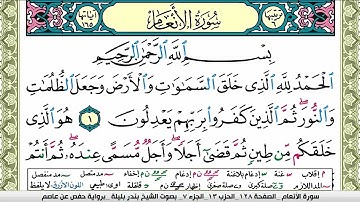 سُورَةُ الأَنْعَامِ
بِسْمِ ٱللَّهِ ٱلرَّحْمَٰنِ ٱلرَّحِيمِ
ٱلْحَمْدُ لِلَّهِ ٱلَّذِى خَلَقَ ٱلسَّمَٰوَٰتِ وَٱلْأَرْضَ وَجَعَلَ ٱلظُّلُمَٰتِ
وَٱلنُّورَ ۖ ثُمَّ ٱلَّذِينَ كَفَرُوا۟ بِرَبِّهِمْ يَعْدِلُونَ ١ هُوَ ٱلَّذِى
خَلَقَكُم مِّن طِينٍ ثُمَّ قَضَىٰٓ أَجَلًا ۖ وَأَجَلٌ مُّسَمًّى عِندَهُۥ ۖ ثُمَّ أَنتُمْ
سورة الأنعام - الصفحة ١٢٨ - الحزب ١٣ - الجزء ٧ - بصوت الشيخ بندر بليلة - برواية حفص عن عاصم